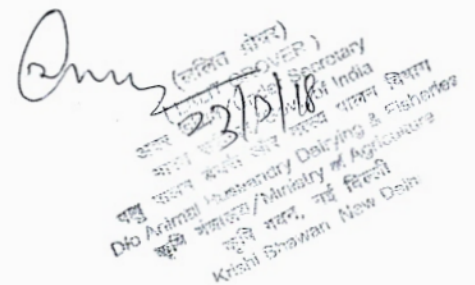 (ललित ग्रोवर)
(LALIT GROVER)
अवर सचिव/Under Secretary
भारत सरकार/Govt. of India
पशु पालन डेयरी और मत्स्य पालन विभाग
D/o Animal Husbandry Dairying & Fisheries
कृषि मंत्रालय/Ministry of Agriculture
कृषि भवन, नई दिल्ली
Krishi Bhawan New Delhi